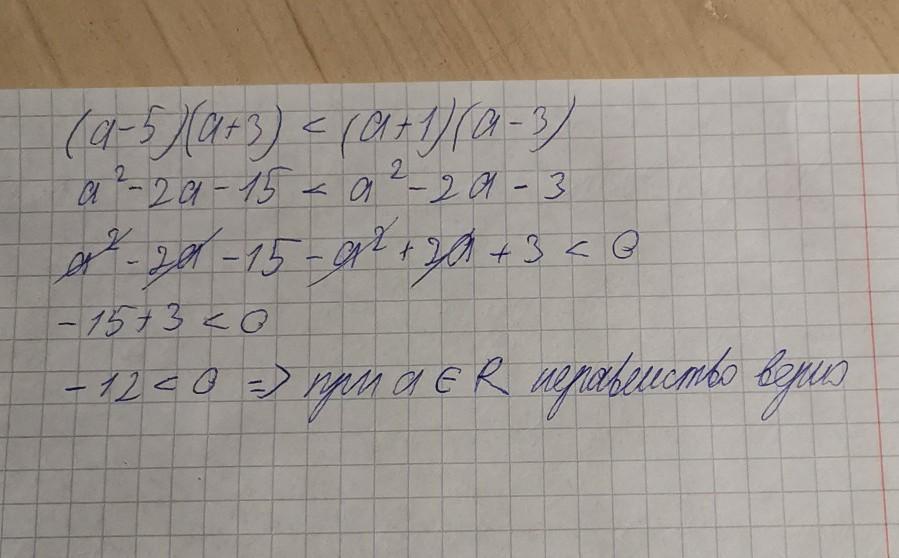 (a-5)(a+3) < (a+1)(a-3)
a²-2a-15 < a²-2a-3
a²-2a-15-a²+2a+3 < 0
-15+3 < 0
-12 < 0 => при a ∈ R неравенство верно